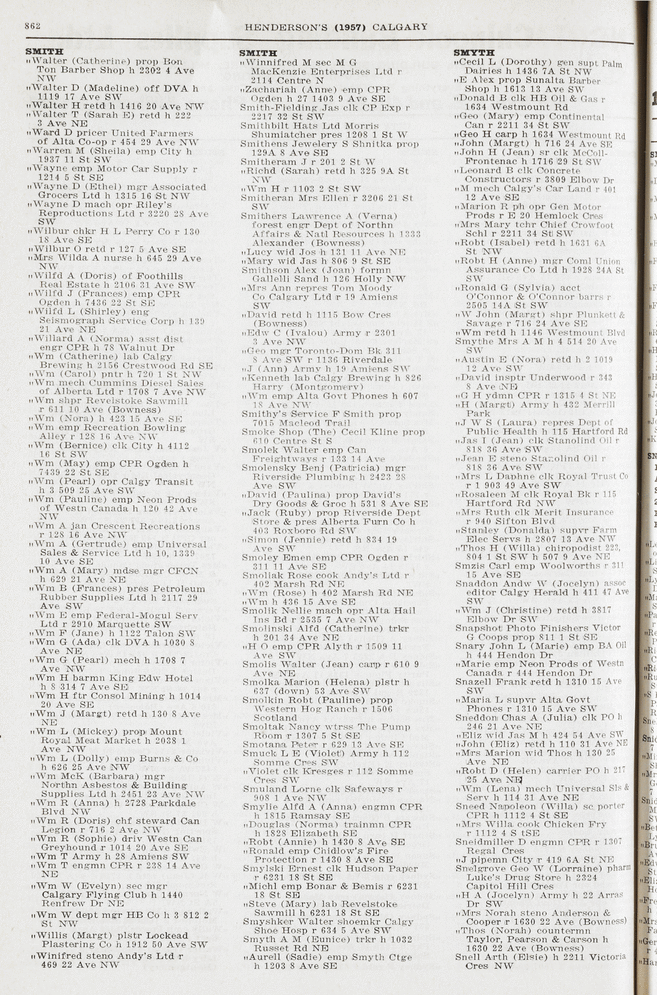 862
HENDERSON'S (1957) CALGARY
SMITH
"Walter (Catherine) prop Bon
Ton Barber Shop h 2302 4 Ave
NW
"Walter D (Madeline) off DVA h
1119 17 Ave SW
"Walter H retd h 1416 20 Ave NW
"Walter T (Sarah E) retd h 222
3 Ave NE
"Ward D pricer United Farmers
of Alta Co-op r 454 29 Ave NW
"Warren M (Sheila) emp City h
1937 11 St SW
"Wayne emp Motor Car Supply r
1214 5 St SE
"Wayne D (Ethel) mgr Associated
Grocers Ltd h 1315 16 St NW
"Wayne D mach opr Riley's
Reproductions Ltd r 3220 28 Ave
SW
"Wilbur chkr H L Perry Co r 130
18 Ave SE
"Wilbur O retd r 127 5 Ave SE
"Mrs Wilda A nurse h 645 29 Ave
NW
"Wilfd A (Doris) of Foothills
Real Estate h 2106 31 Ave SW
"Wilfd J (Frances) emp CPR
Ogden h 7436 22 St SE
"Wilfd L (Shirley) eng
Seismograph Service Corp h 139
21 Ave NE
"Willard A (Norma) asst dist
engr CPR h 78 Walnut Dr
"Wm (Catherine) lab Calgy
Brewing h 2156 Crestwood Rd SE
"Wm (Carol) pntr h 720 1 St NW
"Wm mech Cummins Diesel Sales
of Alberta Ltd r 1708 7 Ave NW
"Wm shpr Revelstoke Sawmill
r 611 10 Ave (Bowness)
"Wm (Nora) h 423 15 Ave SE
"Wm emp Recreation Bowling
Alley r 128 16 Ave NW
"Wm (Bernice) clk City h 4112
16 St SW
"Wm (May) emp CPR Ogden h
7439 22 St SE
"Wm (Pearl) opr Calgy Transit
h 3 509 25 Ave SW
"Wm (Pauline) emp Neon Prods
of Westn Canada h 120 42 Ave
NW
"Wm A jan Crescent Recreations
r 128 16 Ave NW
"Wm A (Gertrude) emp Universal
Sales & Service Ltd h 10, 1339
10 Ave SE
"Wm A (Mary) mdse mgr CFCN
h 629 21 Ave NE
"Wm B (Frances) pres Petroleum
Rubber Supplies Ltd h 2117 29
Ave SW
"Wm E emp Federal-Mogul Serv
Ltd r 2910 Marquette SW
"Wm F (Jane) h 1122 Talon SW
"Wm G (Ada) clk DVA h 1030 8
Ave NE
"Wm G (Pearl) mech h 1708 7
Ave NW
"Wm H barmn King Edw Hotel
h 8 314 7 Ave SE
"Wm H ftr Consol Mining h 1014
20 Ave SE
"Wm J (Margt) retd h 130 8 Ave
NE
"Wm L (Mickey) prop Mount
Royal Meat Market h 2038 1
Ave NW
"Wm L (Dolly) emp Burns & Co
h 626 25 Ave NW
"Wm McK (Barbara) mgr
Northn Asbestos & Building
Supplies Ltd h 2451 23 Ave NW
"Wm R (Anna) h 2728 Parkdale
Blvd NW
"Wm R (Doris) chf steward Can
Legion r 716 2 Ave NW
"Wm R (Sophie) driv Westn Can
Greyhound r 1014 20 Ave SE
"Wm T Army h 28 Amiens SW
"Wm T engmn CPR r 238 14 Ave
NE
"Wm W (Evelyn) sec mgr
Calgary Flying Club h 1440
Renfrew Dr NE
"Wm W dept mgr HB Co h 3 812 2
St NW
"Willis (Margt) plstr Lockead
Plastering Co h 1912 50 Ave SW
"Winifred steno Andy's Ltd r
469 22 Ave NW
SMITH
"Winnifred M sec M G
MacKenzie Enterprises Ltd r
2114 Centre N
"Zachariah (Anne) emp CPR
Ogden h 27 1403 9 Ave SE
Smith-Fielding Jas clk CP Exp r
2217 32 St SW
Smithbilt Hats Ltd Morris
Shumiatcher pres 1208 1 St W
Smithens Jewelery S Shnitka prop
129A 8 Ave SE
Smitheram J r 201 2 St W
"Richd (Sarah) retd h 325 9A St
NW
"Wm H r 1103 2 St SW
Smitheran Mrs Ellen r 3206 21 St
SW
Smithers Lawrence A (Verna)
forest engr Dept of Northn
Affairs & Natl Resources h 1333
Alexander (Bowness)
"Lucy wid Jos h 131 11 Ave NE
"Mary wid Jas h 806 9 St SE
Smithson Alex (Jean) formn
Gallelli Sand h 126 Holly NW
"Mrs Ann repres Tom Moody
Co Calgary Ltd r 19 Amiens
SW
"David retd h 1115 Bow Cres
(Bowness)
"Edw C (Ivalou) Army r 2301
3 Ave NW
"Geo mgr Toronto-Dom Bk 311
8 Ave SW r 1136 Riverdale
"J (Ann) Army h 19 Amiens SW
"Kenneth lab Calgy Brewing h 826
Harry (Montgomery)
"Wm emp Alta Govt Phones h 607
18 Ave NW
Smithy's Service F Smith prop
7015 Macleod Trail
Smoke Shop (The) Cecil Kline prop
610 Centre St S
Smolek Walter emp Can
Freightways r 133 14 Ave
Smolensky Benj (Patricia) mgr
Riverside Plumbing h 2423 28
Ave SW
"David (Paulina) prop David's
Dry Goods & Groc h 531 8 Ave SE
"Jack (Ruby) prop Riverside Dept
Store & pres Alberta Furn Co h
403 Roxboro Rd SW
"Simon (Jennie) retd h 834 19
Ave SW
Smoley Emen emp CPR Ogden r
311 11 Ave SE
Smoliak Rose cook Andy's Ltd r
402 Marsh Rd NE
"Wm (Rose) h 402 Marsh Rd NE
"Wm h 436 15 Ave SE
Smolik Nellie mach opr Alta Hail
Ins Bd r 2535 7 Ave NW
Smolinski Alfd (Catherine) trkr
h 201 34 Ave NE
"H O emp CPR Alyth r 1509 11
Ave SW
Smolis Walter (Jean) carp r 610 9
Ave NE
Smolka Marion (Helena) plstr h
637 (down) 53 Ave SW
Smolkin Robt (Pauline) prop
Western Hog Ranch r 1506
Scotland
Smoltak Nancy wtrss The Pump
Room r 1307 5 St SE
Smotana Peter r 629 13 Ave SE
Smuck L E (Violet) Army h 112
Somme Cres SW
"Violet clk Kresges r 112 Somme
Cres SW
Smuland Lorne clk Safeways r
908 1 Ave NW
Smylie Alfd A (Anna) engmn CPR
h 1815 Ramsay SE
"Douglas (Norma) trainmn CPR
h 1828 Elizabeth SE
"Robt (Annie) h 1430 8 Ave SE
"Ronald emp Chidlow's Fire
Protection r 1430 8 Ave SE
Smylski Ernest clk Hudson Paper
r 6231 18 St SE
"Michl emp Bonar & Bemis r 6231
18 St SE
"Steve (Mary) lab Revelstoke
Sawmill h 6231 18 St SE
Smyshker Walter shoemkr Calgy
Shoe Hosp r 634 5 Ave SW
Smyth A M (Eunice) trkr h 1032
Russet Rd NE
"Aurell (Sadie) emp Smyth Ctge
h 1203 8 Ave SE
SMYTH
"Cecil L (Dorothy) gen supt Palm
Dairies h 1436 7A St NW
"E Alex prop Sunalta Barber
Shop h 1613 13 Ave SW
"Donald B clk HB Oil & Gas r
1634 Westmount Rd
"Geo (Mary) emp Continental
Can r 2211 34 St SW
"Geo H carp h 1634 Westmount Rd
"John (Margt) h 716 24 Ave SE
"John H (Jean) sr clk McColl-
Frontenac h 1716 29 St SW
"Leonard B clk Concrete
Constructors r 3809 Elbow Dr
"M mech Calgy's Car Land r 401
12 Ave SE
"Marion R ph opr Gen Motor
Prods r E 20 Hemlock Cres
"Mrs Mary tchr Chief Crowfoot
Schl r 2211 34 St SW
"Robt (Isabel) retd h 1631 6A
St NW
"Robt H (Anne) mgr Coml Union
Assurance Co Ltd h 1928 24A St
SW
"Ronald G (Sylvia) acct
O'Connor & O'Connor barrs r
2505 14A St SW
"W John (Margt) shpr Plunkett &
Savage r 716 24 Ave SE
"Wm retd h 1146 Westmount Blvd
Smythe Mrs A M h 4 514 20 Ave
SW
"Austin E (Nora) retd h 2 1019
12 Ave SW
"David insptr Underwood r 343
8 Ave NE
"G H ydmn CPR r 1315 4 St NE
"H (Margt) Army h 432 Merrill
Park
"J W S (Laura) repres Dept of
Public Health h 115 Hartford Rd
"Jas I (Jean) clk Stanolind Oil r
818 36 Ave SW
"Jean E steno Stanolind Oil r
818 36 Ave SW
"Mrs L Daphne clk Royal Trust Co
r 1 903 49 Ave SW
"Rosaleen M clk Royal Bk r 115
Hartford Rd NW
"Mrs Ruth clk Merit Insurance
r 940 Sifton Blvd
"Stanley (Donalda) supvr Farm
Elec Servs h 2807 13 Ave NW
"Thos H (Willa) chiropodist 223,
804 1 St SW h 507 9 Ave NE
Smzis Carl emp Woolworths r 311
15 Ave SE
Snaddon Andw W (Jocelyn) assoc
editor Calgy Herald h 411 47 Ave
SW
"Wm J (Christine) retd h 3817
Elbow Dr SW
Snapshot Photo Finishers Victor
G Coops prop 811 1 St SE
Snary John L (Marie) emp BA Oil
h 444 Hendon Dr
"Marie emp Neon Prods of Westn
Canada r 444 Hendon Dr
Snazell Frank retd h 1310 15 Ave
SW
"Maria L supvr Alta Govt
Phones r 1310 15 Ave SW
Sneddon Chas A (Julia) clk PO h
246 21 Ave NE
"Eliz wid Jas M h 424 54 Ave SW
"John (Eliz) retd h 110 31 Ave NE
"Mrs Marion wid Thos h 130 25
Ave NE
"Robt D (Helen) carrier PO h 217
25 Ave NE
"Wm (Lena) mech Universal Sls &
Serv h 114 31 Ave NE
Sneed Napoleon (Willa) sc porter
CPR h 1112 4 St SE
"Mrs Willa cook Chicken Fry
r 1112 4 S tSE
Sneidmiller D engmn CPR r 1307
Regal Cres
"J pipemn City r 419 6A St NE
Snelgrove Geo W (Lorraine) pharm
Luke's Drug Store h 2324
Capitol Hill Cres
"H A (Jocelyn) Army h 22 Arras
Dr SW
"Mrs Norah steno Anderson &
Cooper r 1630 22 Ave (Bowness)
"Thos (Norah) countermn
Taylor, Pearson & Carson h
1630 22 Ave (Bowness)
Snell Arth (Elsie) h 2211 Victoria
Cres NW